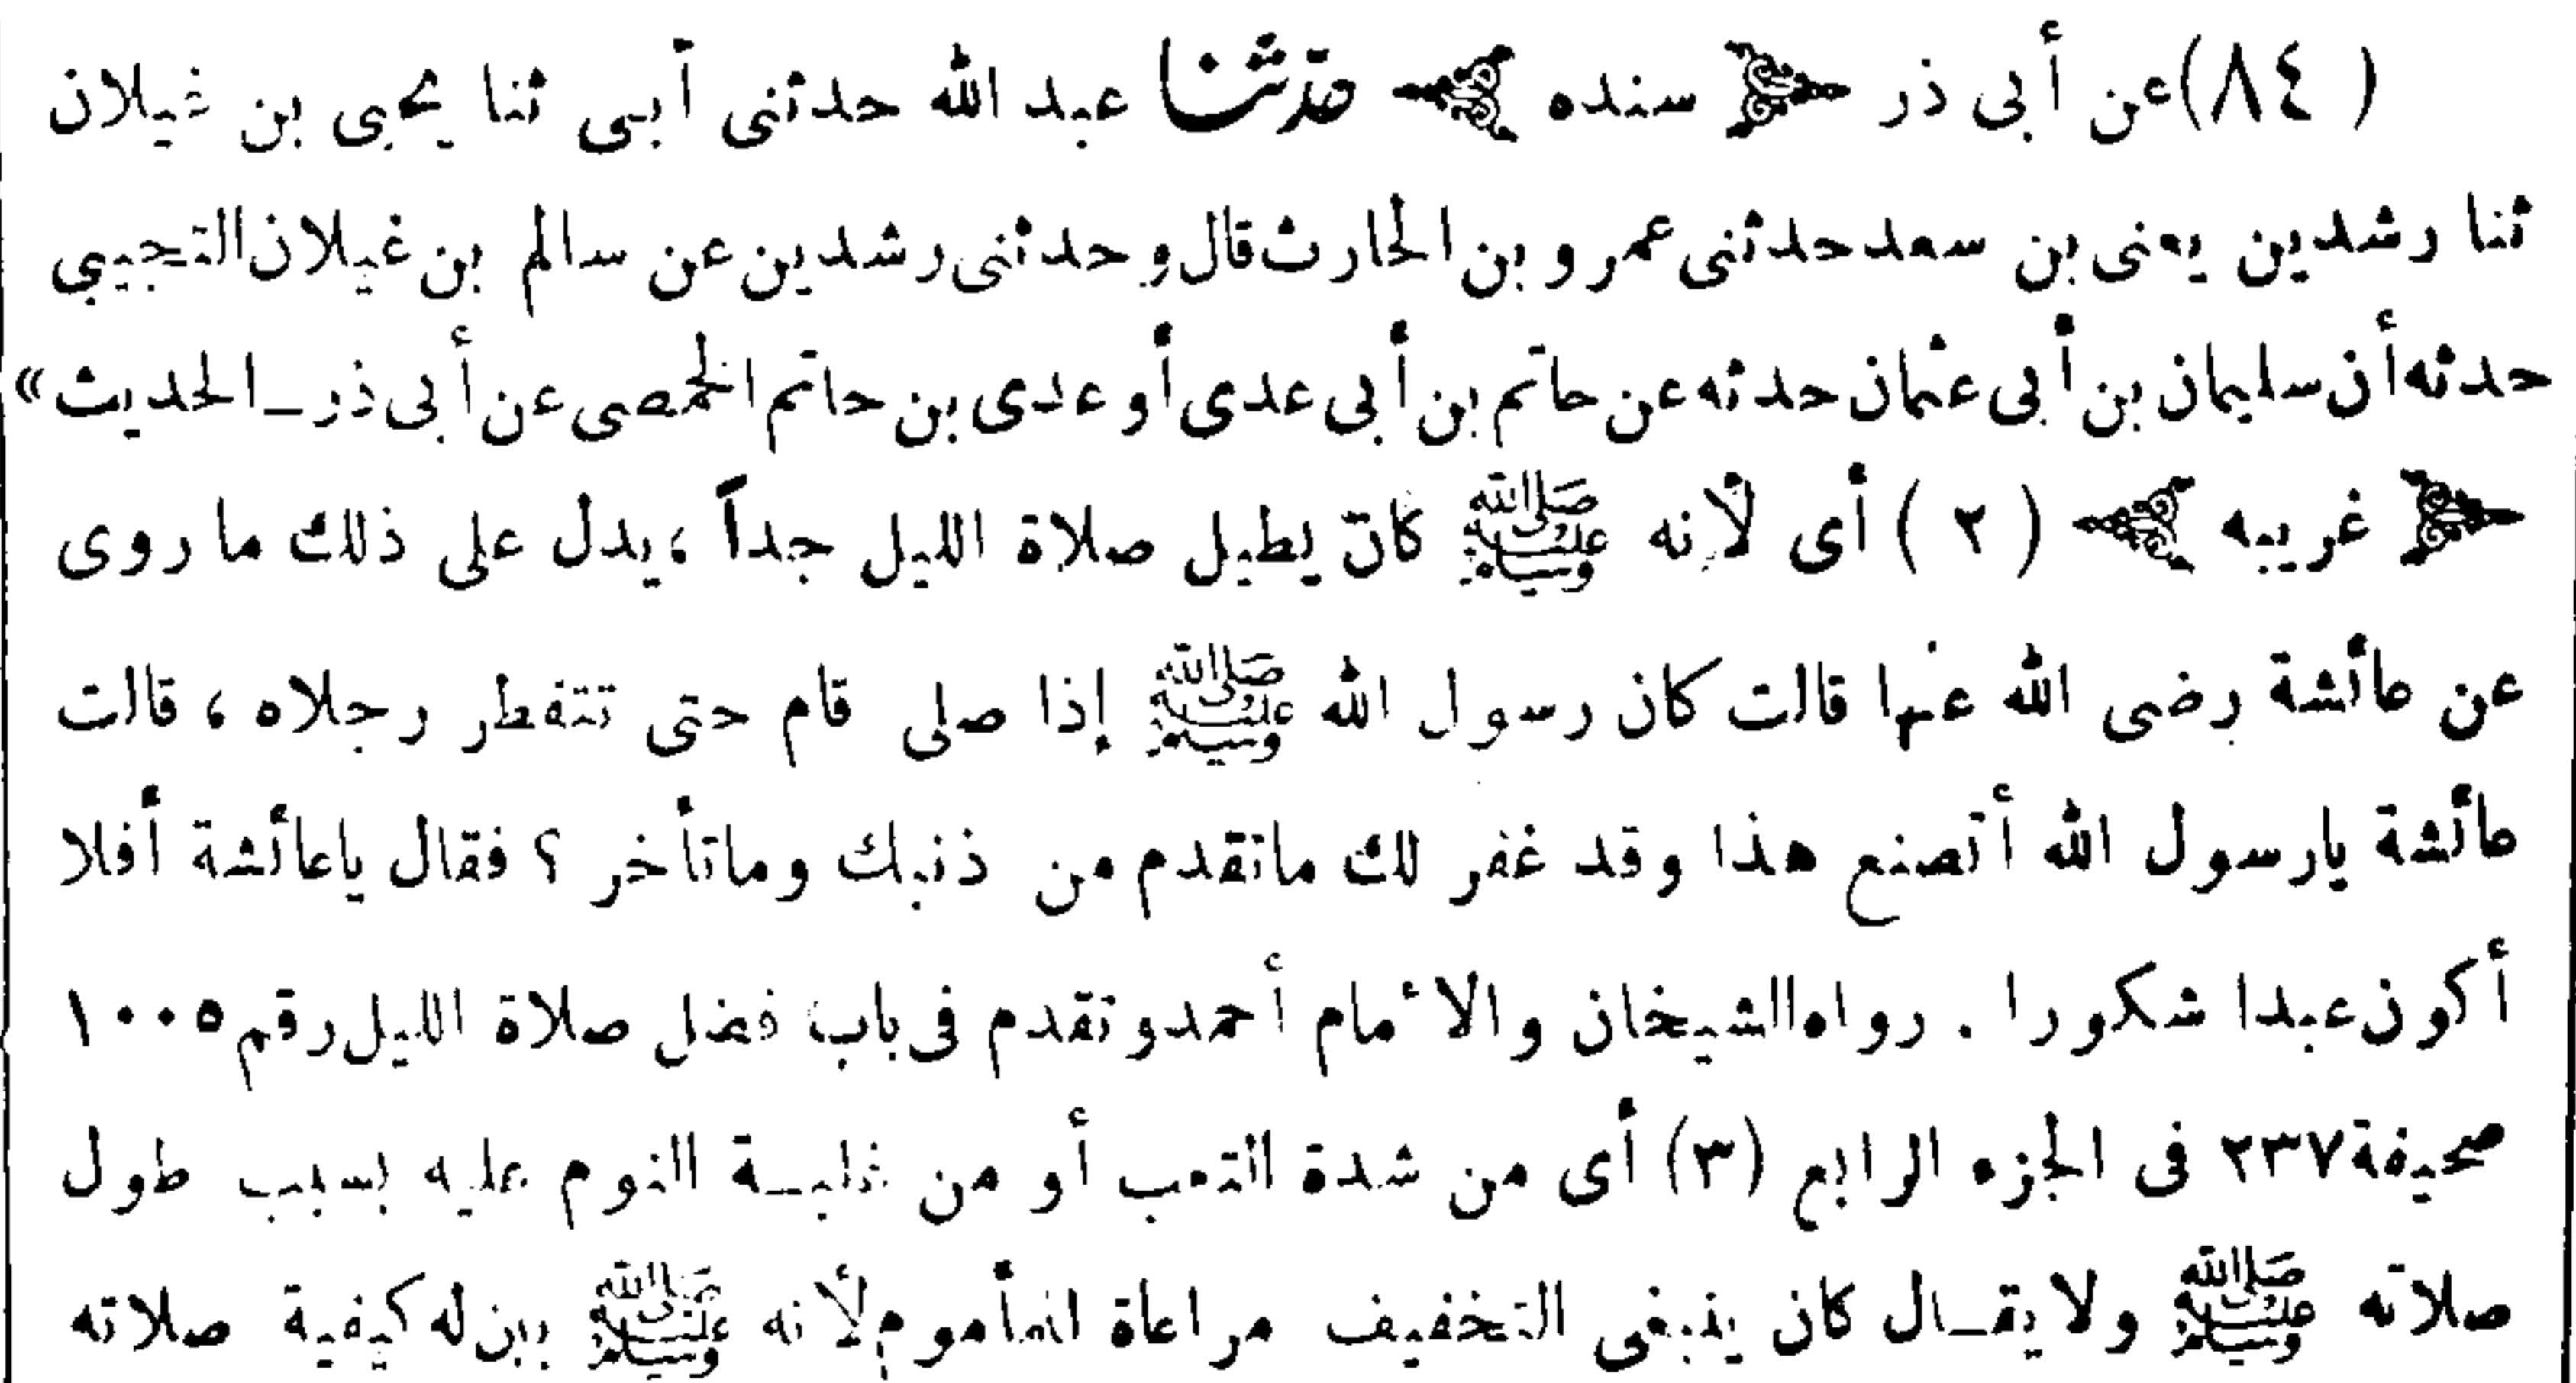 (٨٤) عن أبى ذر ﴿ سنده ﴾ حدثنا عبد الله حدثنى أبى ثنا يحيى بن غيلان
ثنا رشدين يعنى بن سعد حدثنى عمرو بن الحارث قال وحدثنى رشدين عن سالم بن غيلان التجيبي
حدثه أن سليمان بن أبى عثمان حدثه عن حاتم بن أبى عدى أو عدى بن حاتم الحمصى عن أبى ذر ــ الحديث»
﴿ غريبه ﴾ (٢) أى لأنه ﷺ كان يطيل صلاة الليل جداً ، يدل على ذلك ما روى
عن عائشة رضى الله عنها قالت كان رسول الله ﷺ إذا صلى قام حتى تتفطر رجلاه ، قالت
عائشة يارسول الله أتصنع هذا وقد غفر لك ماتقدم من ذنبك وماتأخر ؟ فقال ياعائشة أفلا
أكون عبدا شكورا . رواه الشيخان والأمام أحمد وتقدم فى باب فضل صلاة الليل رقم ١٠٠٥
صحيفة ٢٣٧ فى الجزء الرابع (٣) أى من شدة التعب أو من غلبــة النوم عليه بسبب طول
صلاته ﷺ ولا يقــال كان ينبغى التخفيف مراعاة المأموم لأنه ﷺ بين له كيفية صلاته